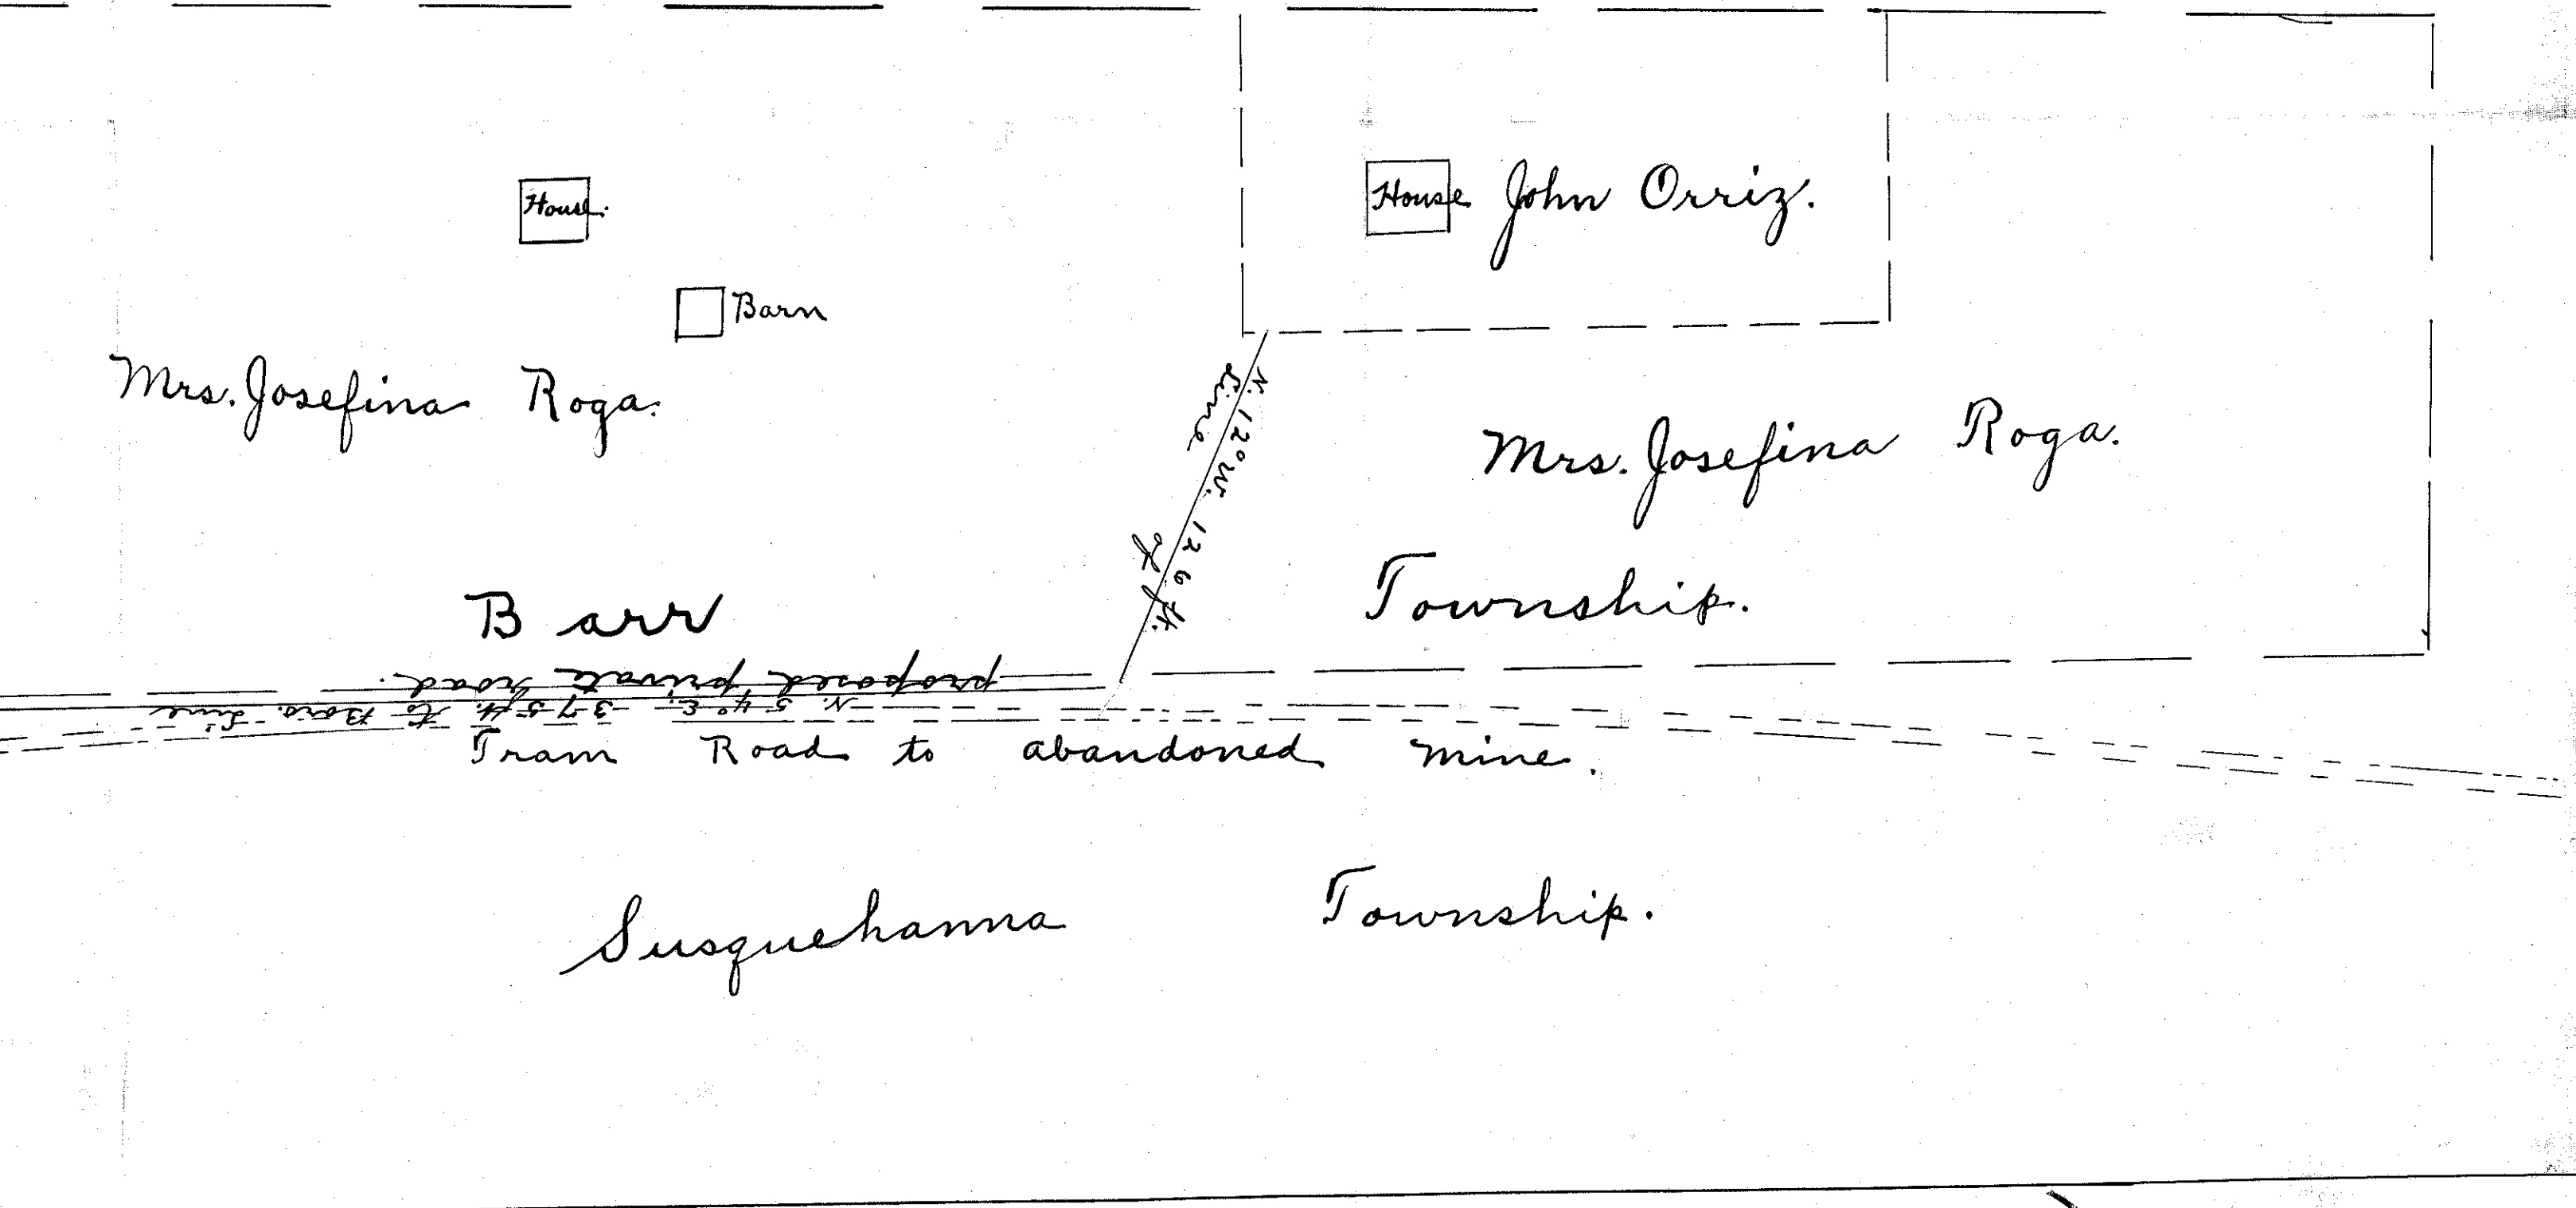 House.
House John Orriz.
Barn
Mrs. Josefina Roga.
Mrs. Josefina Roga.
N. 12° W. 126 ft.
Line of
Barr Township.
proposed private road.
N. 54° E. 375 ft. to Boro. Line
Tram Road to abandoned mine.
Susquehanna Township.